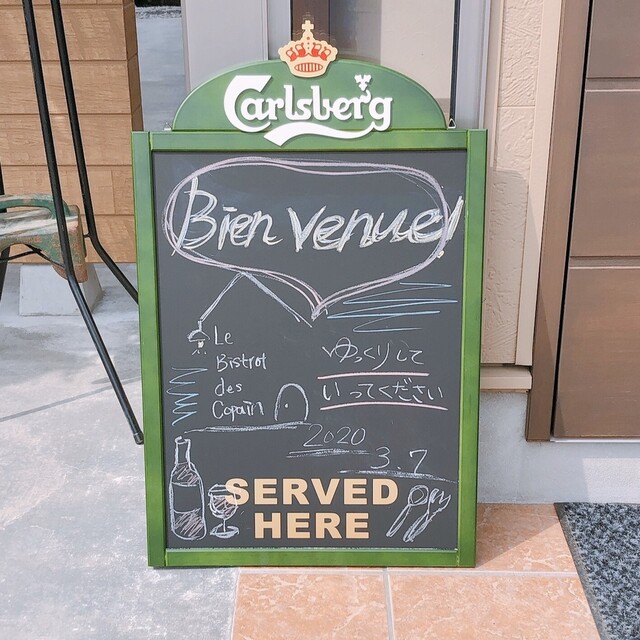 Carlsberg
Bien venue!
Le
Bistrot
des
Copain
ゆっくりして
いってください
2020
3.7
SERVED
HERE